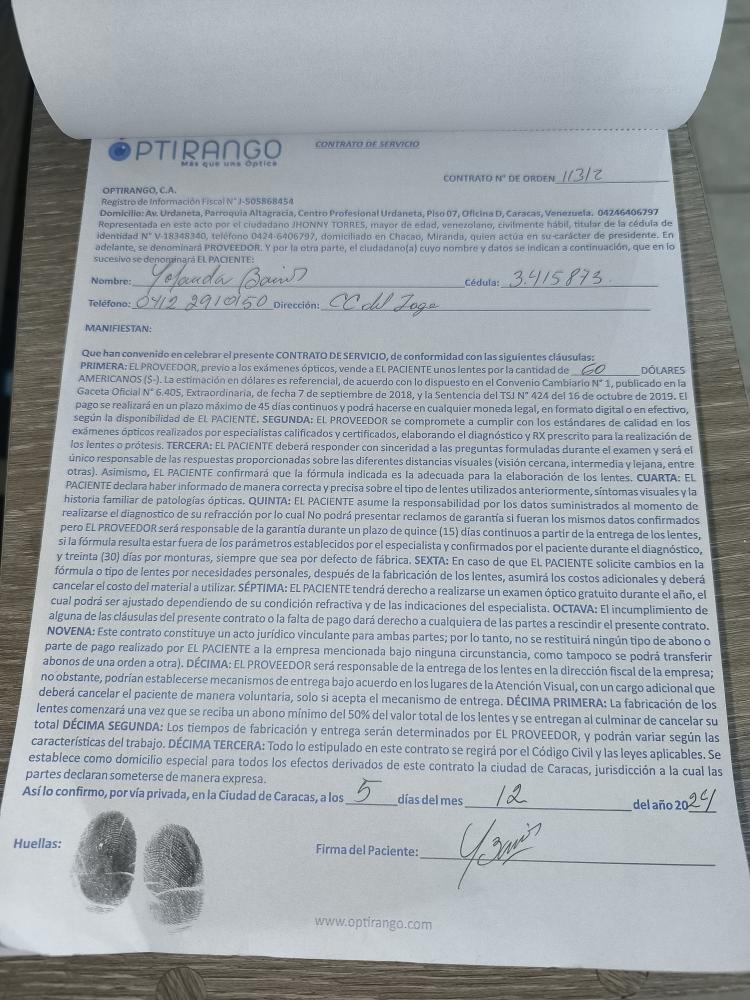 OPTIRANGO
Más que una Óptica
CONTRATO DE SERVICIO
CONTRATO N° DE ORDEN 11312
OPTIRANGO, C.A.
Registro de Información Fiscal N° J-505868454
Domicilio: Av. Urdaneta, Parroquia Altagracia, Centro Profesional Urdaneta, Piso 07, Oficina D, Caracas, Venezuela. 04246406797
Representada en este acto por el ciudadano JHONNY TORRES, mayor de edad, venezolano, civilmente hábil, titular de la cédula de
identidad N° V-18348340, teléfono 0424-6406797, domiciliado en Chacao, Miranda, quien actúa en su carácter de presidente. En
adelante, se denominará PROVEEDOR. Y por la otra parte, el ciudadano(a) cuyo nombre y datos se indican a continuación, que en lo
sucesivo se denominará EL PACIENTE:
Nombre: Yolanda Cédula: 3.415873
Teléfono: 0412 2910150 Dirección: CC del
MANIFIESTAN:
Que han convenido en celebrar el presente CONTRATO DE SERVICIO, de conformidad con las siguientes cláusulas:
PRIMERA: EL PROVEEDOR, previo a los exámenes ópticos, vende a EL PACIENTE unos lentes por la cantidad de 60 DÓLARES
AMERICANOS ($-). La estimación en dólares es referencial, de acuerdo con lo dispuesto en el Convenio Cambiario N° 1, publicado en la
Gaceta Oficial N° 6.405, Extraordinaria, de fecha 7 de septiembre de 2018, y la Sentencia del TSJ N° 424 del 16 de octubre de 2019. El
pago se realizará en un plazo máximo de 45 días continuos y podrá hacerse en cualquier moneda legal, en formato digital o en efectivo,
según la disponibilidad de EL PACIENTE. SEGUNDA: EL PROVEEDOR se compromete a cumplir con los estándares de calidad en los
exámenes ópticos realizados por especialistas calificados y certificados, elaborando el diagnóstico y RX prescrito para la realización de
los lentes o prótesis. TERCERA: EL PACIENTE deberá responder con sinceridad a las preguntas formuladas durante el examen y será el
único responsable de las respuestas proporcionadas sobre las diferentes distancias visuales (visión cercana, intermedia y lejana, entre
otras). Asimismo, EL PACIENTE confirmará que la fórmula indicada es la adecuada para la elaboración de los lentes. CUARTA: EL
PACIENTE declara haber informado de manera correcta y precisa sobre el tipo de lentes utilizados anteriormente, síntomas visuales y la
historia familiar de patologías ópticas. QUINTA: EL PACIENTE asume la responsabilidad por los datos suministrados al momento de
realizarse el diagnostico de su refracción por lo cual No podrá presentar reclamos de garantía si fueran los mismos datos confirmados
pero EL PROVEEDOR será responsable de la garantía durante un plazo de quince (15) días continuos a partir de la entrega de los lentes,
si la fórmula resulta estar fuera de los parámetros establecidos por el especialista y confirmados por el paciente durante el diagnóstico,
y treinta (30) días por monturas, siempre que sea por defecto de fábrica. SEXTA: En caso de que EL PACIENTE solicite cambios en la
fórmula o tipo de lentes por necesidades personales, después de la fabricación de los lentes, asumirá los costos adicionales y deberá
cancelar el costo del material a utilizar. SÉPTIMA: EL PACIENTE tendrá derecho a realizarse un examen óptico gratuito durante el año, el
cual podrá ser ajustado dependiendo de su condición refractiva y de las indicaciones del especialista. OCTAVA: El incumplimiento de
alguna de las cláusulas del presente contrato o la falta de pago dará derecho a cualquiera de las partes a rescindir el presente contrato.
NOVENA: Este contrato constituye un acto jurídico vinculante para ambas partes; por lo tanto, no se restituirá ningún tipo de abono o
parte de pago realizado por EL PACIENTE a la empresa mencionada bajo ninguna circunstancia, como tampoco se podrá transferir
abonos de una orden a otra). DÉCIMA: EL PROVEEDOR será responsable de la entrega de los lentes en la dirección fiscal de la empresa;
no obstante, podrían establecerse mecanismos de entrega bajo acuerdo en los lugares de la Atención Visual, con un cargo adicional que
deberá cancelar el paciente de manera voluntaria, solo si acepta el mecanismo de entrega. DÉCIMA PRIMERA: La fabricación de los
lentes comenzará una vez que se reciba un abono mínimo del 50% del valor total de los lentes y se entregan al culminar de cancelar su
total DÉCIMA SEGUNDA: Los tiempos de fabricación y entrega serán determinados por EL PROVEEDOR, y podrán variar según las
características del trabajo. DÉCIMA TERCERA: Todo lo estipulado en este contrato se regirá por el Código Civil y las leyes aplicables. Se
establece como domicilio especial para todos los efectos derivados de este contrato la ciudad de Caracas, jurisdicción a la cual las
partes declaran someterse de manera expresa.
Así lo confirmo, por vía privada, en la Ciudad de Caracas, a los 5 días del mes 12 del año 2024
Huellas:
Firma del Paciente:
www.optirango.com